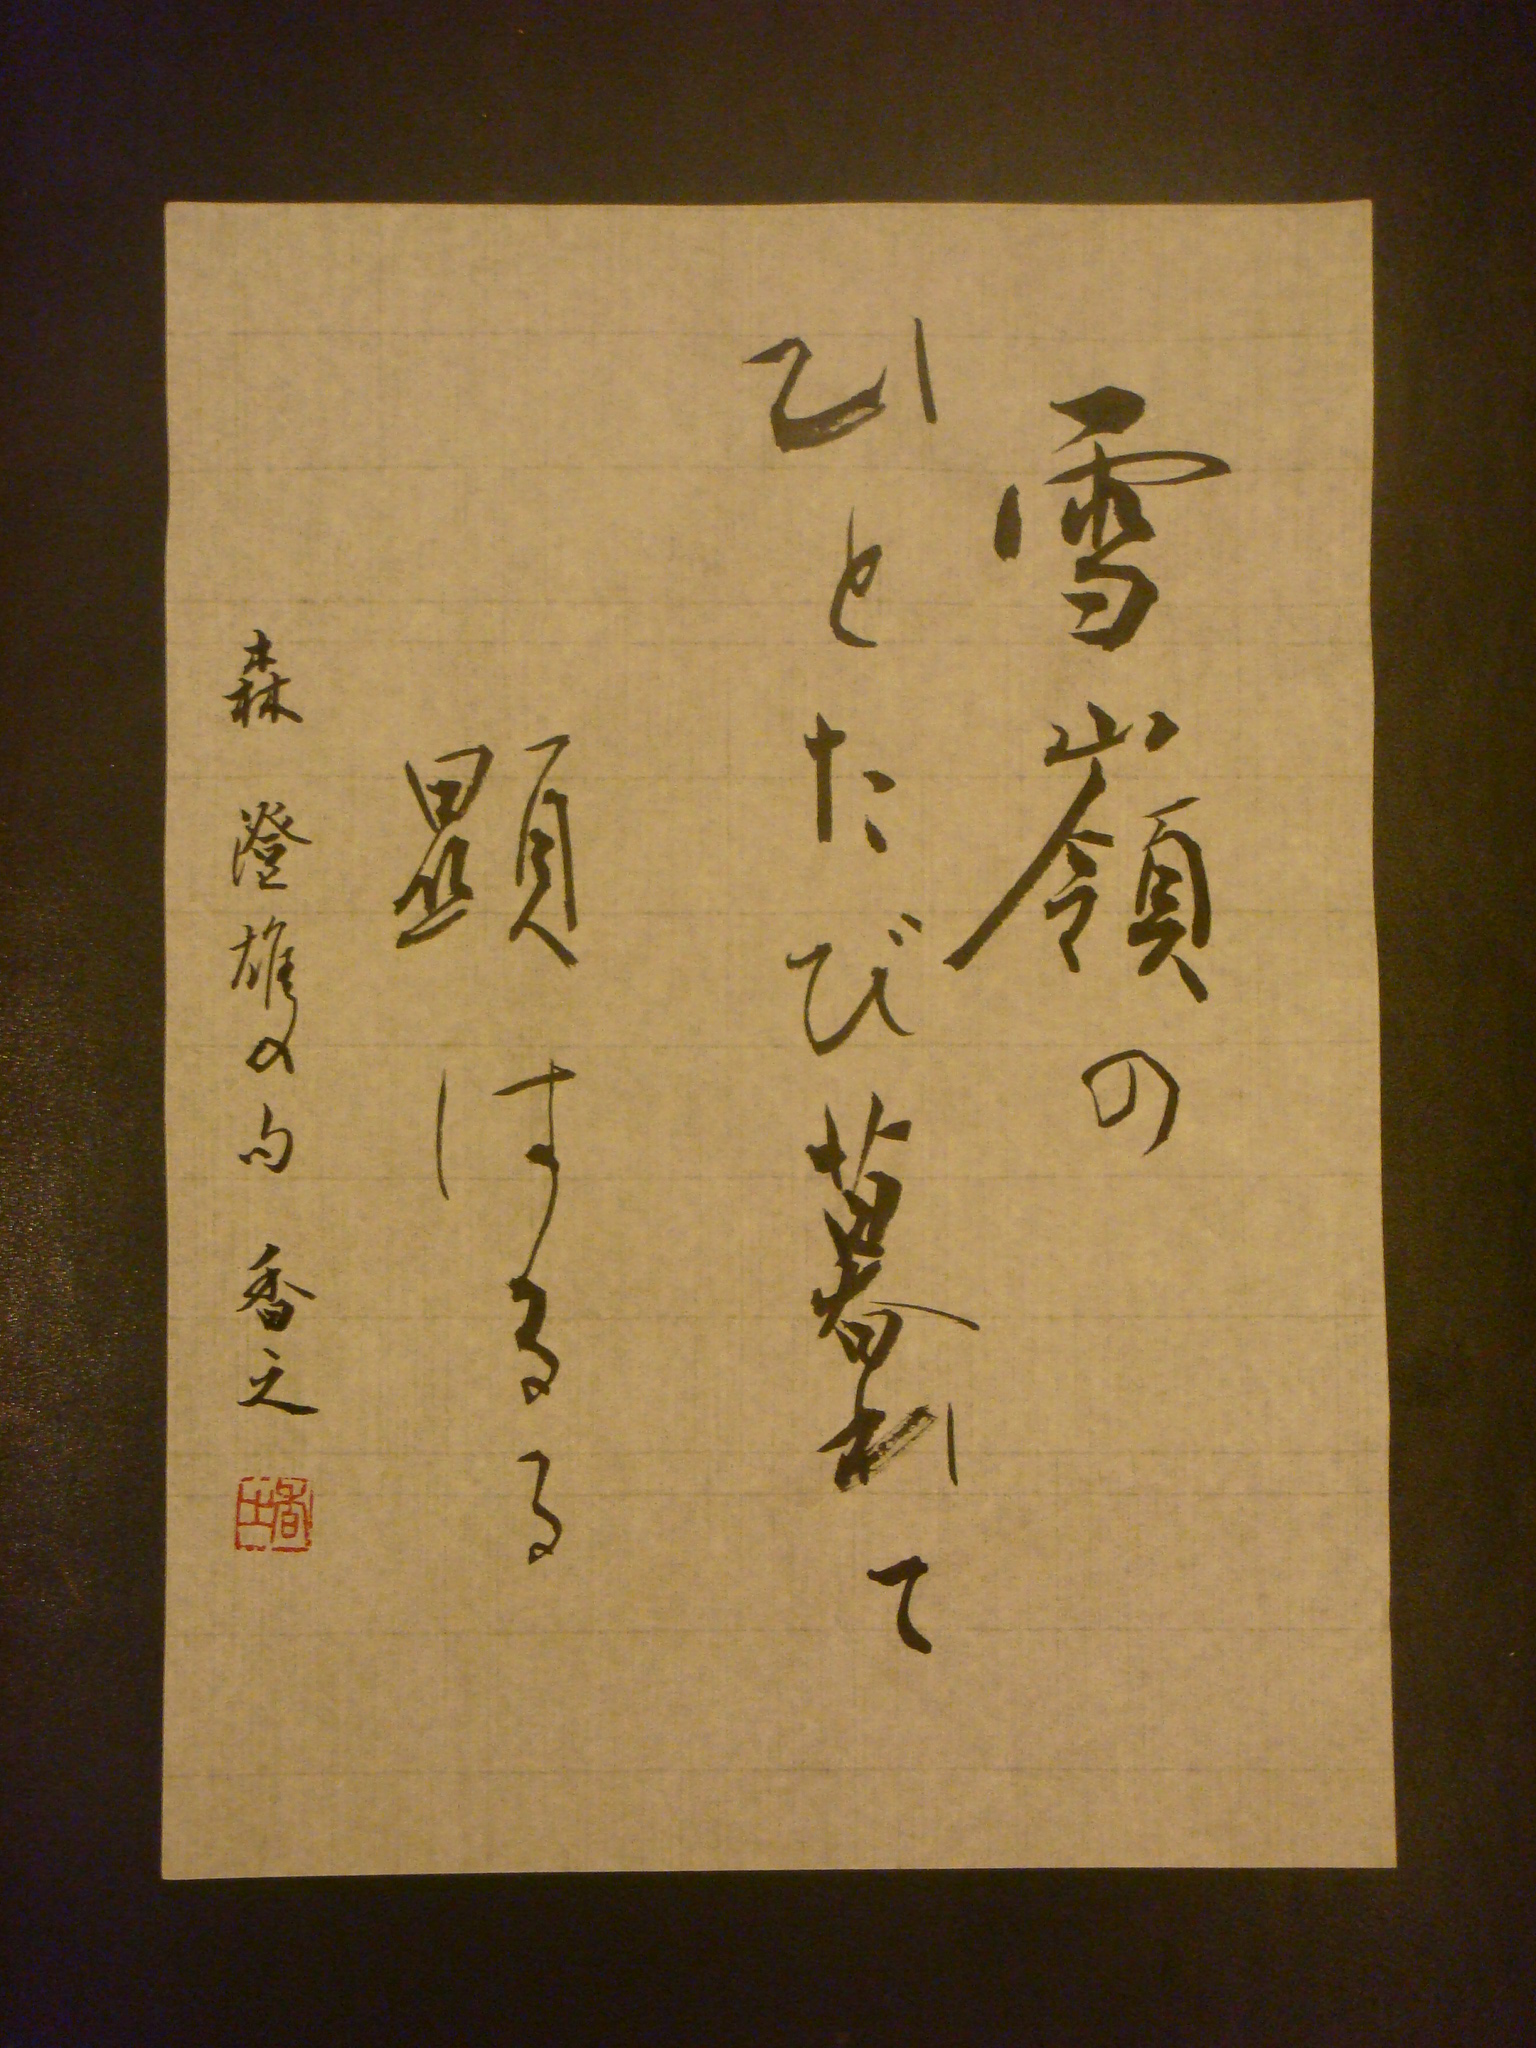 雪嶺の
ひとたび暮れて
顕はるる
森 澄雄の句 香之